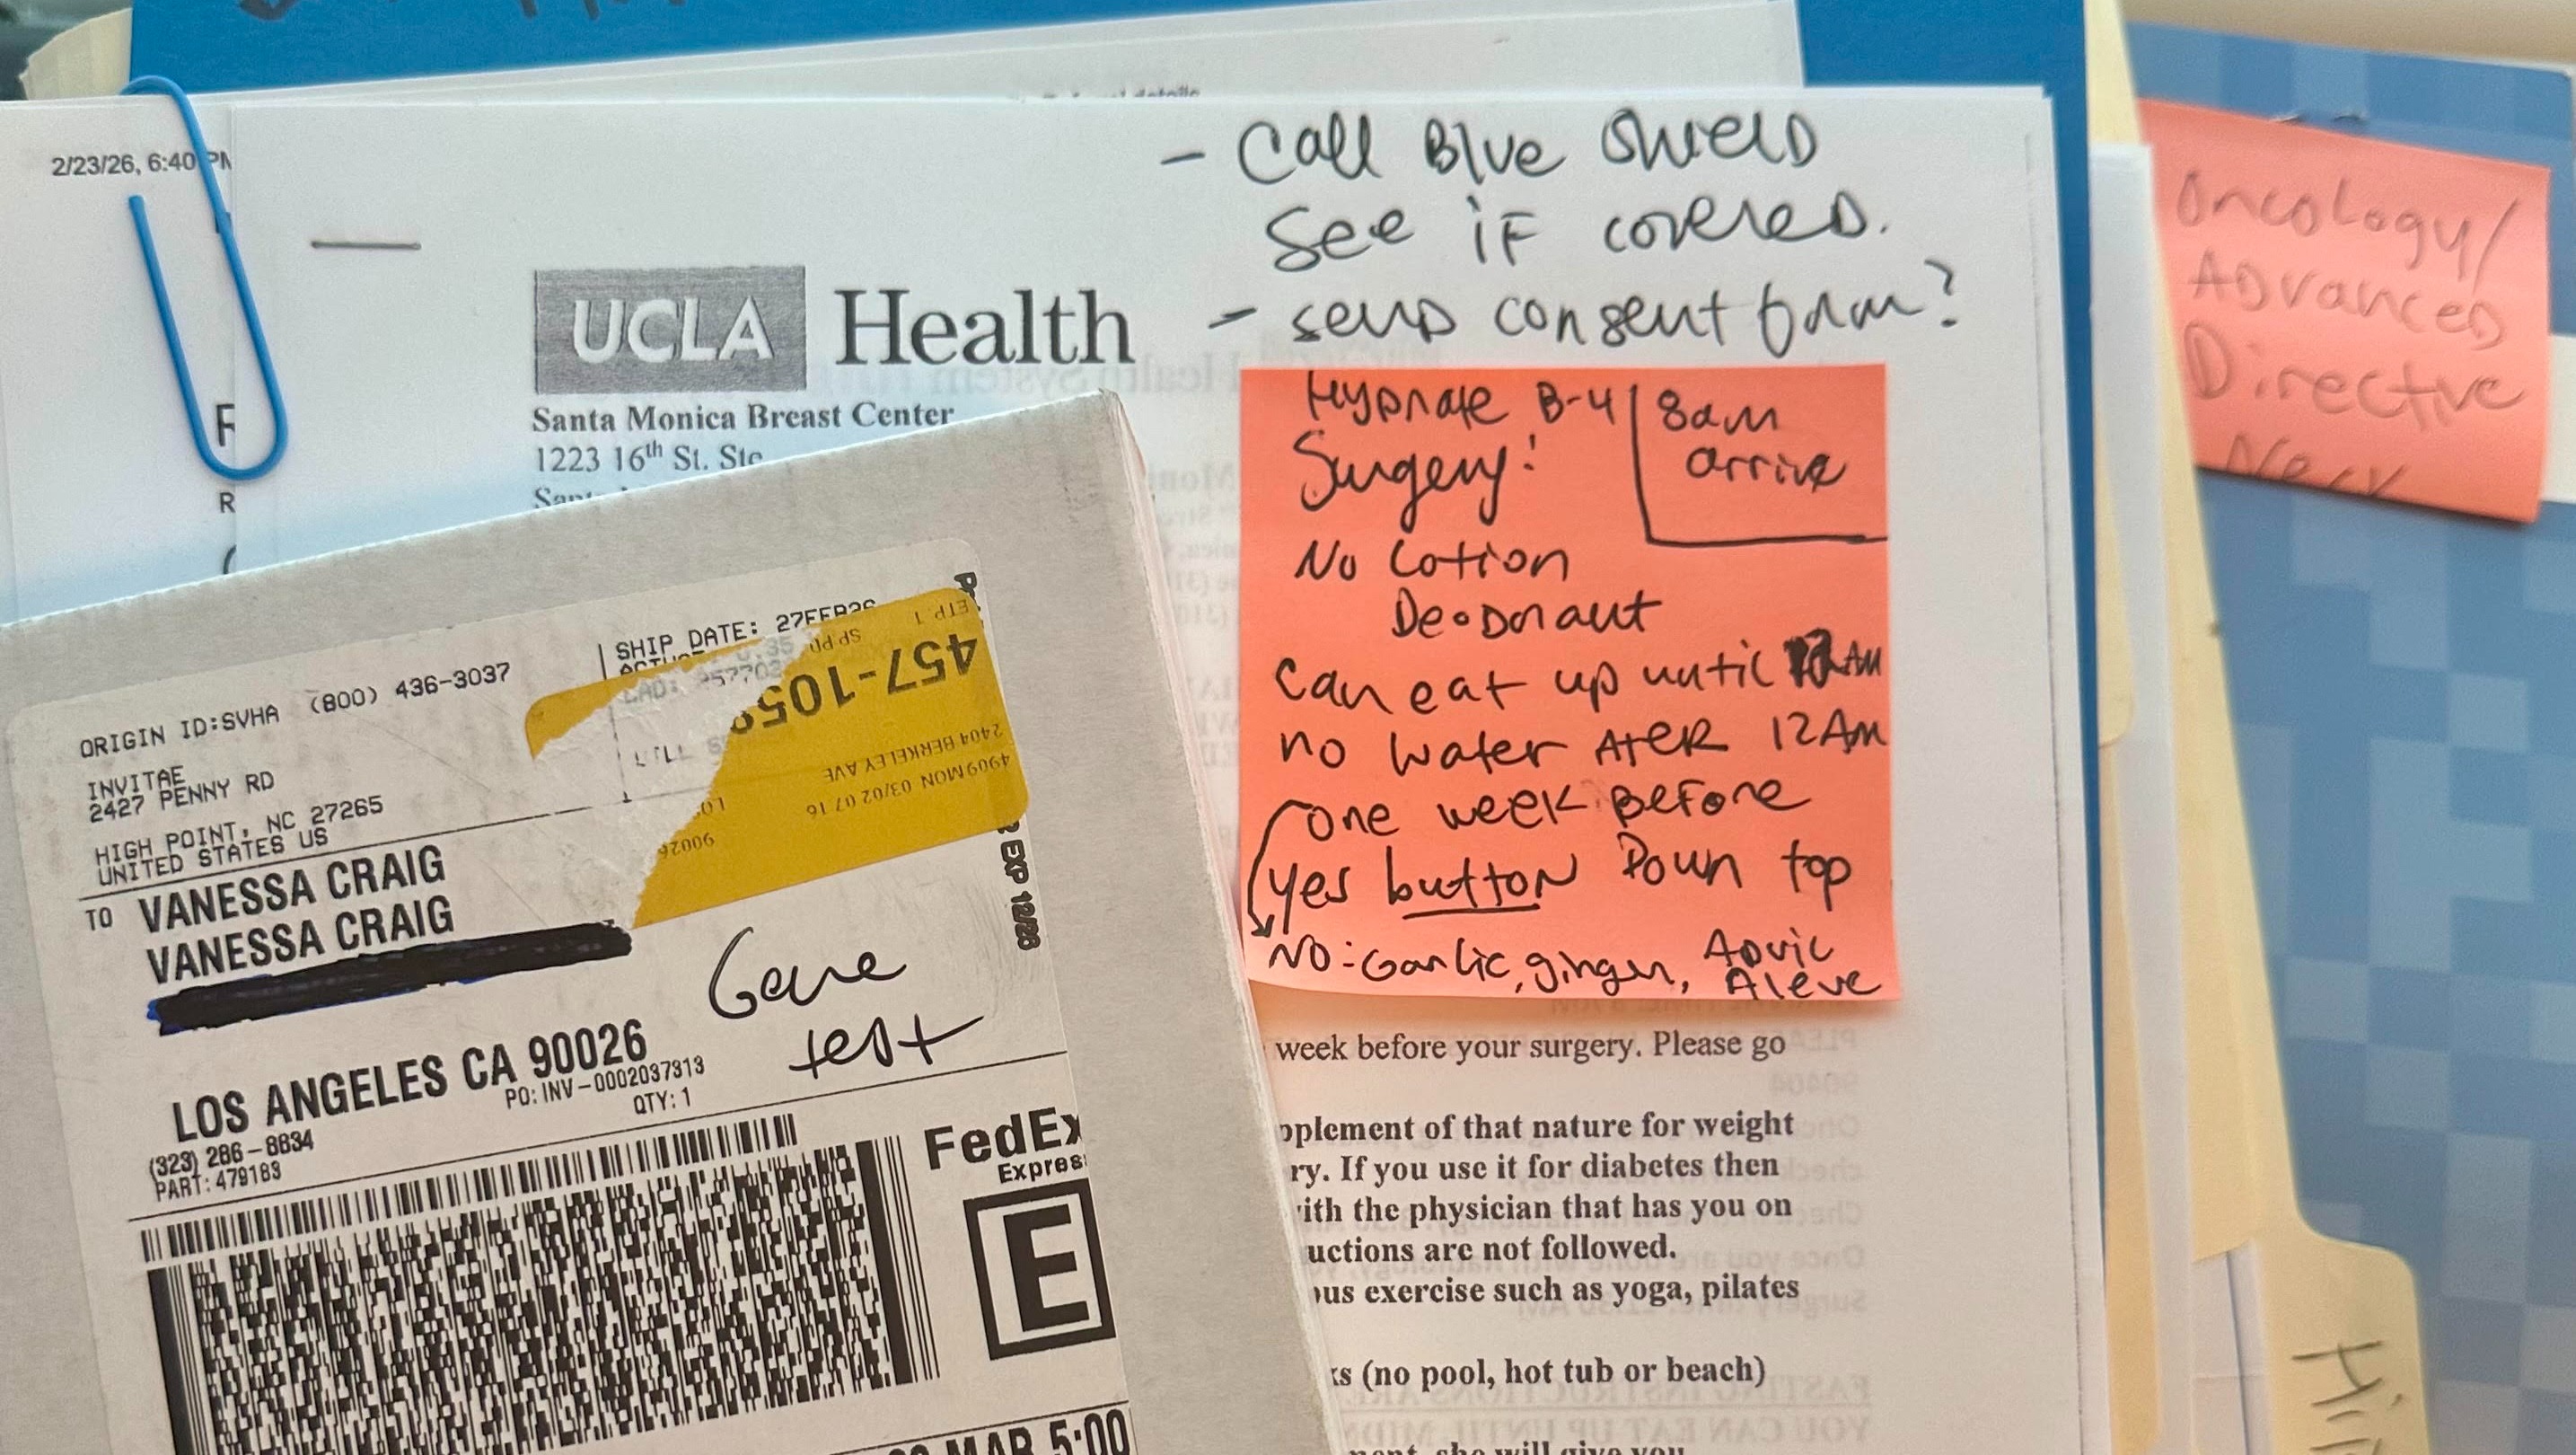 2/23/26, 6:40 PM
- Call Blue Shield
See if covered.
- send consent form?
UCLA Health
Santa Monica Breast Center
1223 16th St. Ste
Hydrate B-4
Surgery!
8am
arrive
No Lotion
Deodorant
can eat up until 12AM
no water After 12AM
one week Before
yes button Down top
NO: Garlic, ginger, Advil
Aleve
week before your surgery. Please go
pplement of that nature for weight
ry. If you use it for diabetes then
with the physician that has you on
uctions are not followed.
ous exercise such as yoga, pilates
ks (no pool, hot tub or beach)
she will give you
Oncology/
Advanced
Directive
ORIGIN ID:SVHA (800) 436-3037
INVITAE
2427 PENNY RD
HIGH POINT, NC 27265
UNITED STATES US
SHIP DATE: 27FEB26
457-105
ETP 1
2404 BERKELEY AVE
4909 MON 03/02 07 16
90026
EXP 12/26
TO VANESSA CRAIG
VANESSA CRAIG
LOS ANGELES CA 90026
(323) 286-8834
PO: INV-0002037313
PART: 479183
QTY: 1
Gene
test
FedEx
Express
E
MAR 5:00